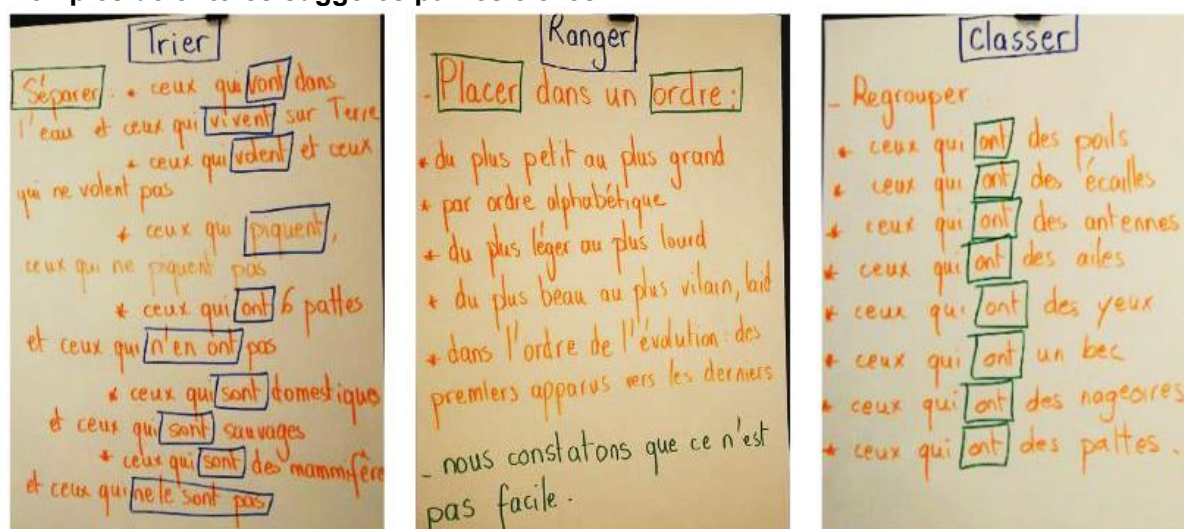 Trier
Séparer : * ceux qui vont dans
l'eau et ceux qui vivent sur Terre
* ceux qui volent et ceux
qui ne volent pas
* ceux qui piquent,
ceux qui ne piquent pas
* ceux qui ont 6 pattes
et ceux qui n'en ont pas
* ceux qui sont domestiques
et ceux qui sont sauvages
* ceux qui sont des mammifère
et ceux qui ne le sont pas
Ranger
- Placer dans un ordre :
* du plus petit au plus grand
* par ordre alphabétique
* du plus léger au plus lourd
* du plus beau au plus vilain, laid
* dans l'ordre de l'évolution : des
premiers apparus vers les derniers
- nous constatons que ce n'est
pas facile.
Classer
- Regrouper
* ceux qui ont des poils
* ceux qui ont des écailles
* ceux qui ont des antennes
* ceux qui ont des ailes
* ceux qui ont des yeux
* ceux qui ont un bec
* ceux qui ont des nageoires
* ceux qui ont des pattes.